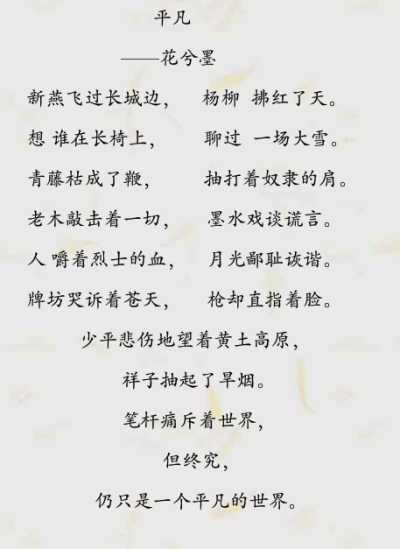 平凡
——花兮墨
新燕飞过长城边， 杨柳 拂红了天。
想 谁在长椅上， 聊过 一场大雪。
青藤枯成了鞭， 抽打着奴隶的肩。
老木敲击着一切， 墨水戏谈谎言。
人 嚼着烈士的血， 月光鄙耻诙谐。
牌坊哭诉着苍天， 枪却直指着脸。
少平悲伤地望着黄土高原，
祥子抽起了旱烟。
笔杆痛斥着世界，
但终究，
仍只是一个平凡的世界。